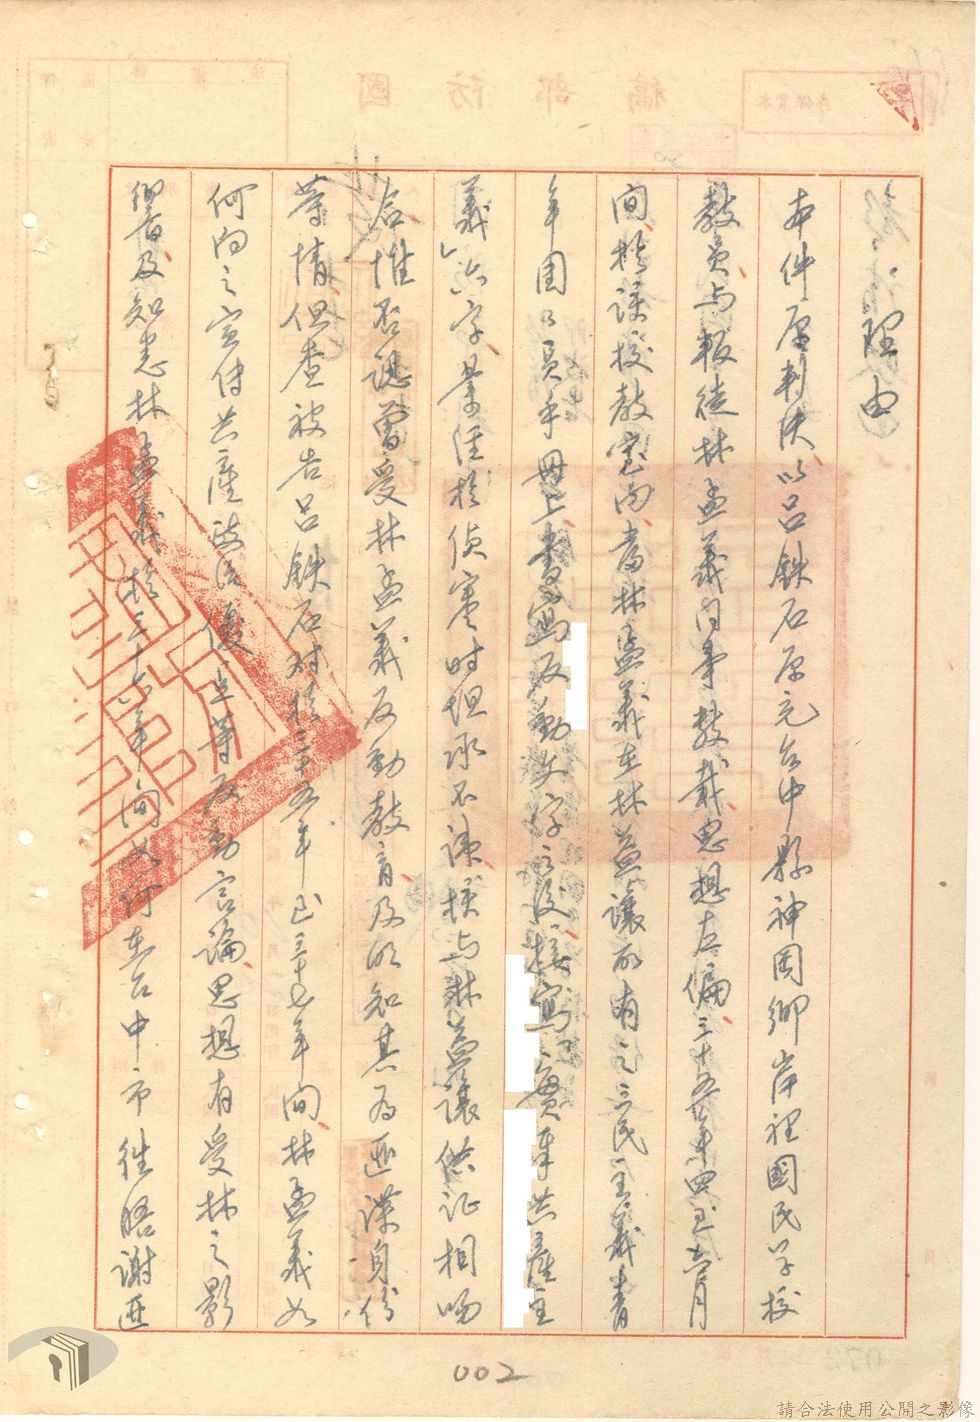 理由
本件原判決以呂鉄石原充台中縣神岡鄉岸裡國民学校
教員与叛徒林孟義同事教員思想左偏三十五年四至六月
間於該校教室內當林孟義在林益讓所有之三民主義青
年團團員手册上書寫反動文字之後接寫「實車共產主
義」六字業經於偵審時坦承不諱核与林益讓供証相吻
合惟否認曾受林孟義反動教育及明知其為匪諜身份
等情但查被告呂鉄石对於三十五年至三十七年間林孟義如
何向之宣传共產政治優点等反動言論思想有受林之影
響及知悉林孟義於三十六年間如何在台中市往晤謝匪
002
請合法使用公開之影像